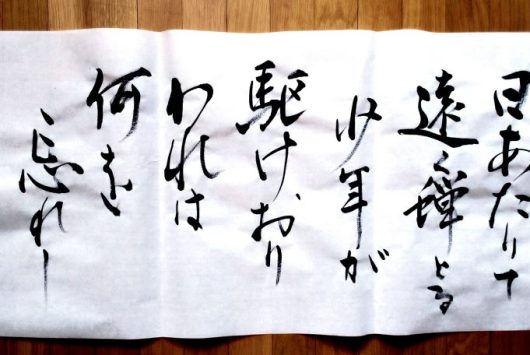 日あたりて
遠く蟬とる
少年が
駆けおり
われは
何を
忘れし